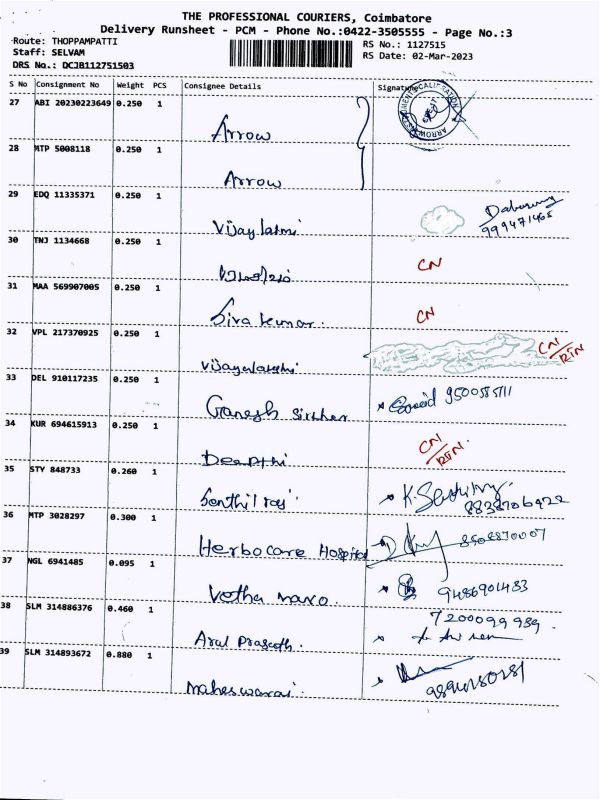 THE PROFESSIONAL COURIERS, Coimbatore
Delivery Runsheet - PCM - Phone No.:0422-3505555 - Page No.:3
Route: THOPPAMPATTI
Staff: SELVAM
DRS No.: DCJB112751503
RS No.: 1127515
RS Date: 02-Mar-2023
S No Consignment No Weight PCS Consignee Details Signature
27 ABI 20230223649 0.250 1
Arrow
28 MTP 5008118 0.250 1
Arrow
29 EDQ 11335371 0.250 1
Vijaylatmi
30 TNJ 1134668 0.250 1
CN
31 MAA 569907005 0.250 1
Siva kumar. CN
32 VPL 217370925 0.250 1
Vijayalakshmi CN/RTN
33 DEL 910117235 0.250 1
Ganesh
34 KUR 694615913 0.250 1
Deepthi CN/RTN.
35 STY 848733 0.260 1
Senthil raj
36 MTP 3028297 0.300 1
Herbocare Hospital
37 NGL 6941485 0.095 1
9486901483
38 SLM 314886376 0.460 1
7200099989.
Arul Prasath.
39 SLM 314893672 0.880 1
Maheswarai.